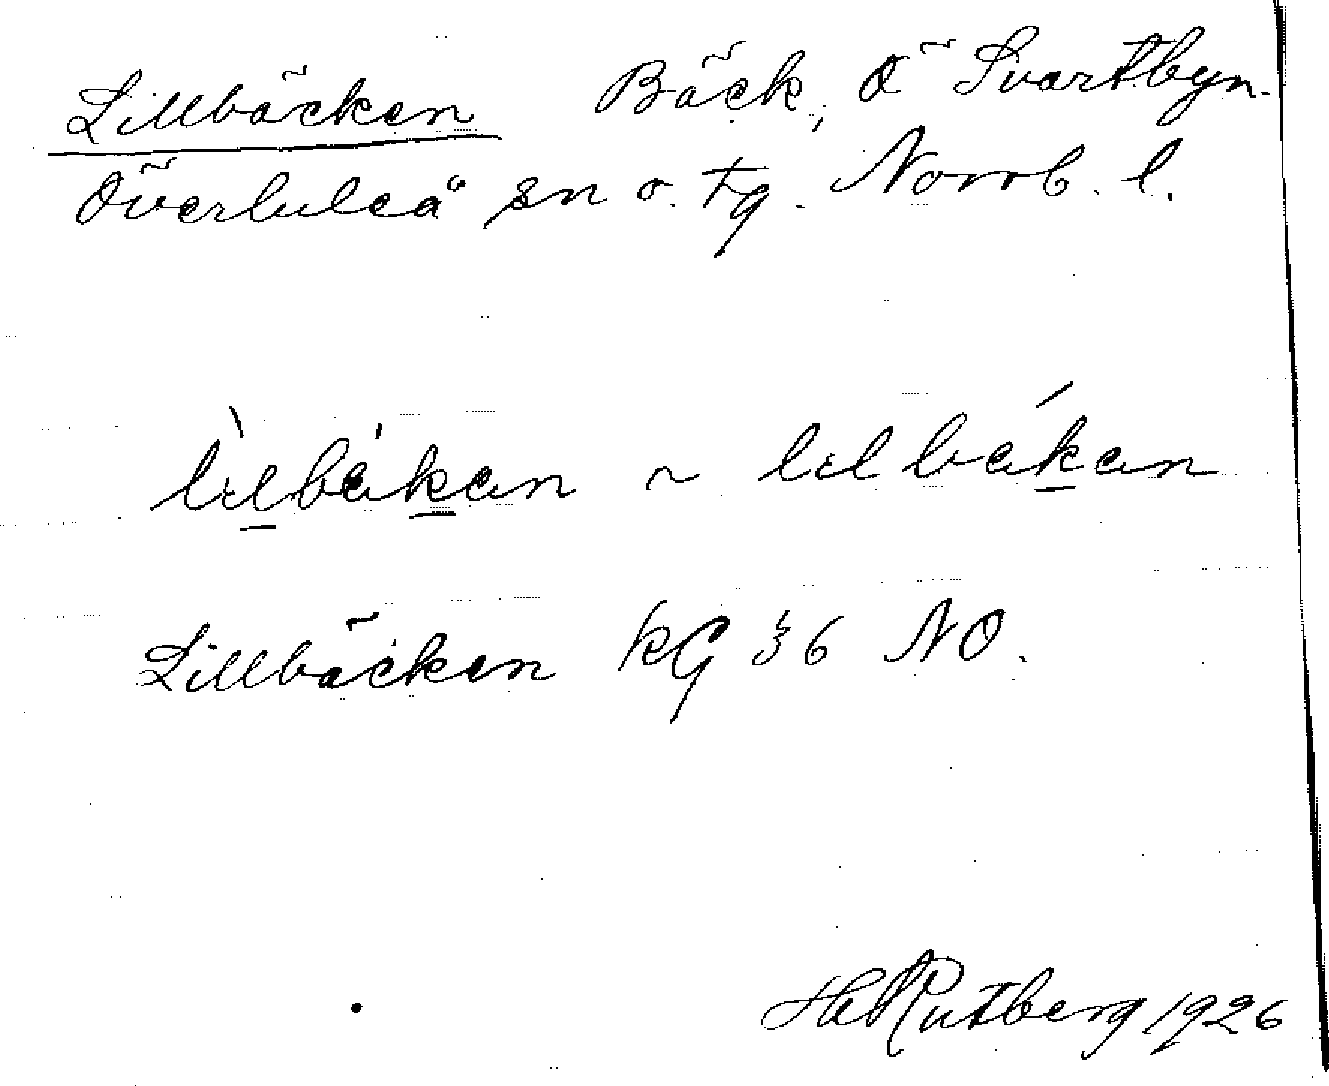 Lillbäcken Bäck, Ö Svartbyn.
Överluleå sn o. tg. Norrb. l.
lilbäkan ~ lilbäkan
Lillbäcken kG 36 NO.
Hd Rutberg 1926